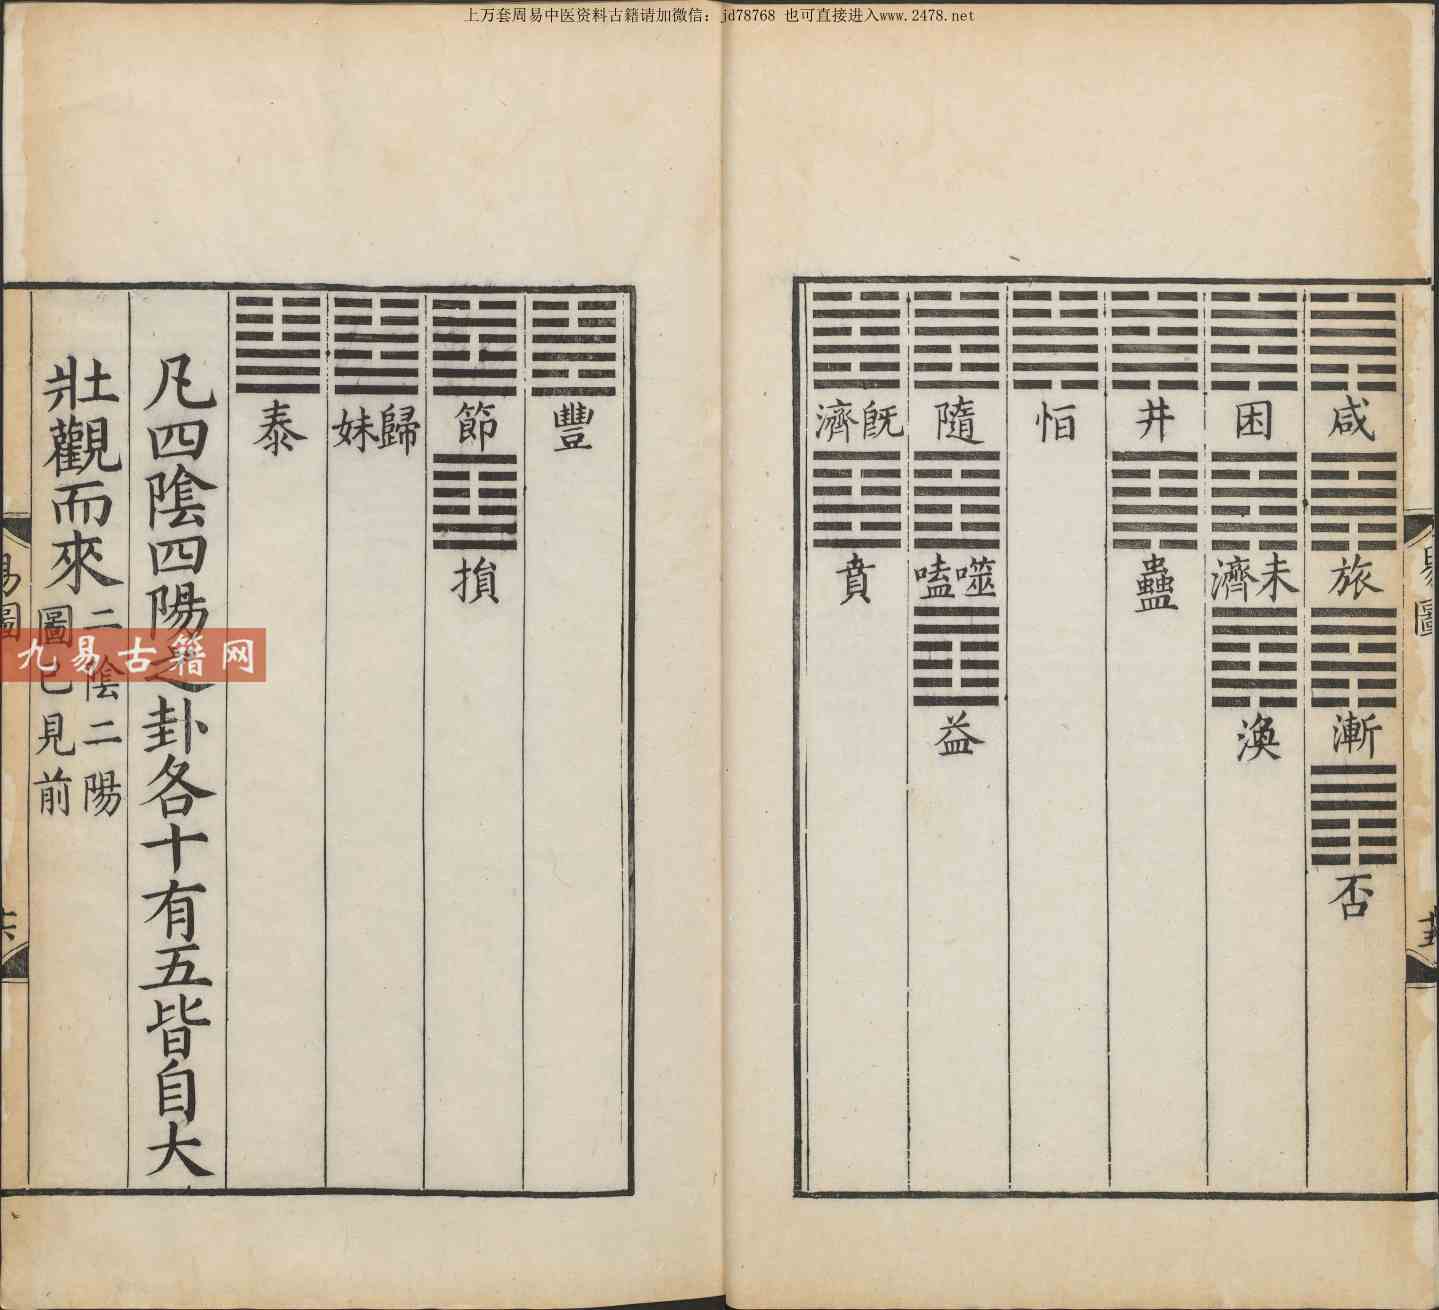 上万套周易中医资料古籍请加微信：jd78768 也可直接进入www.2478.net
咸
旅
漸
否
困
未濟
渙
井
蠱
恒
隨
噬嗑
益
既濟
賁
豐
節
損
歸妹
泰
凡四陰四陽之卦各十有五皆自大
壯觀而來二陰二陽圖已見前
九易古籍网
易圖